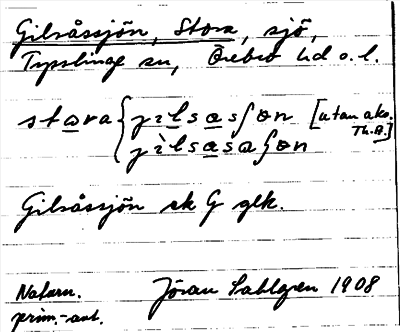 Gilsåssjön, Stora, sjö,
Tysslinge sn, Örebro hd o. l.
stora { jìlsas∫ön [utan aks.
Th.A.]
jìlsasa∫ön
Gilsåssjön ek G glk.
Naturn. Jöran Sahlgren 1908
prim.-ant.